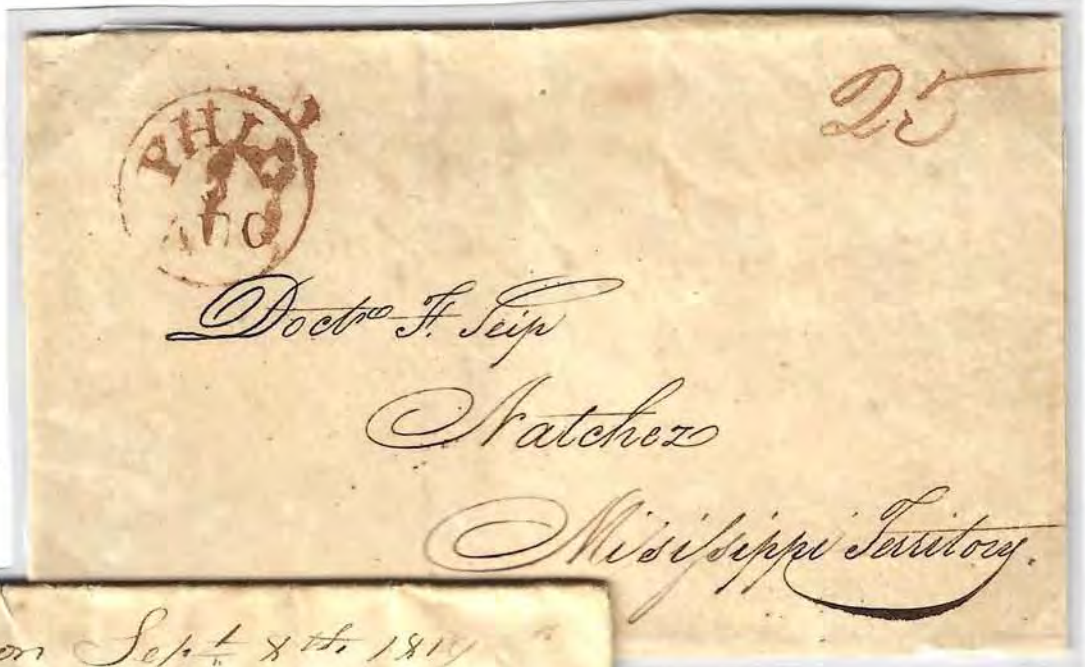 PHL
AUG
25
Doctr F. Seip
Natchez
Misiſsippi Territory.
on Sept 8th